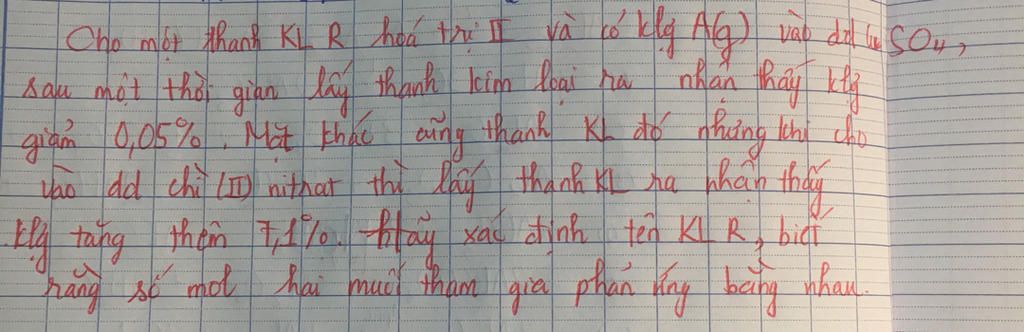 Cho một thanh KL R hoá trị II và có klg A(g) vào dd CuSO4,
sau một thời gian lấy thanh kim loại ra nhận thấy klg
giảm 0,05%. Mặt khác cũng thanh KL đó nhưng khi cho
vào dd chì (II) nitrat thì lấy thanh KL ra nhận thấy
klg tăng thêm 7,1%. Hãy xác định tên KL R, biết
rằng số mol hai muối tham gia phản ứng bằng nhau.